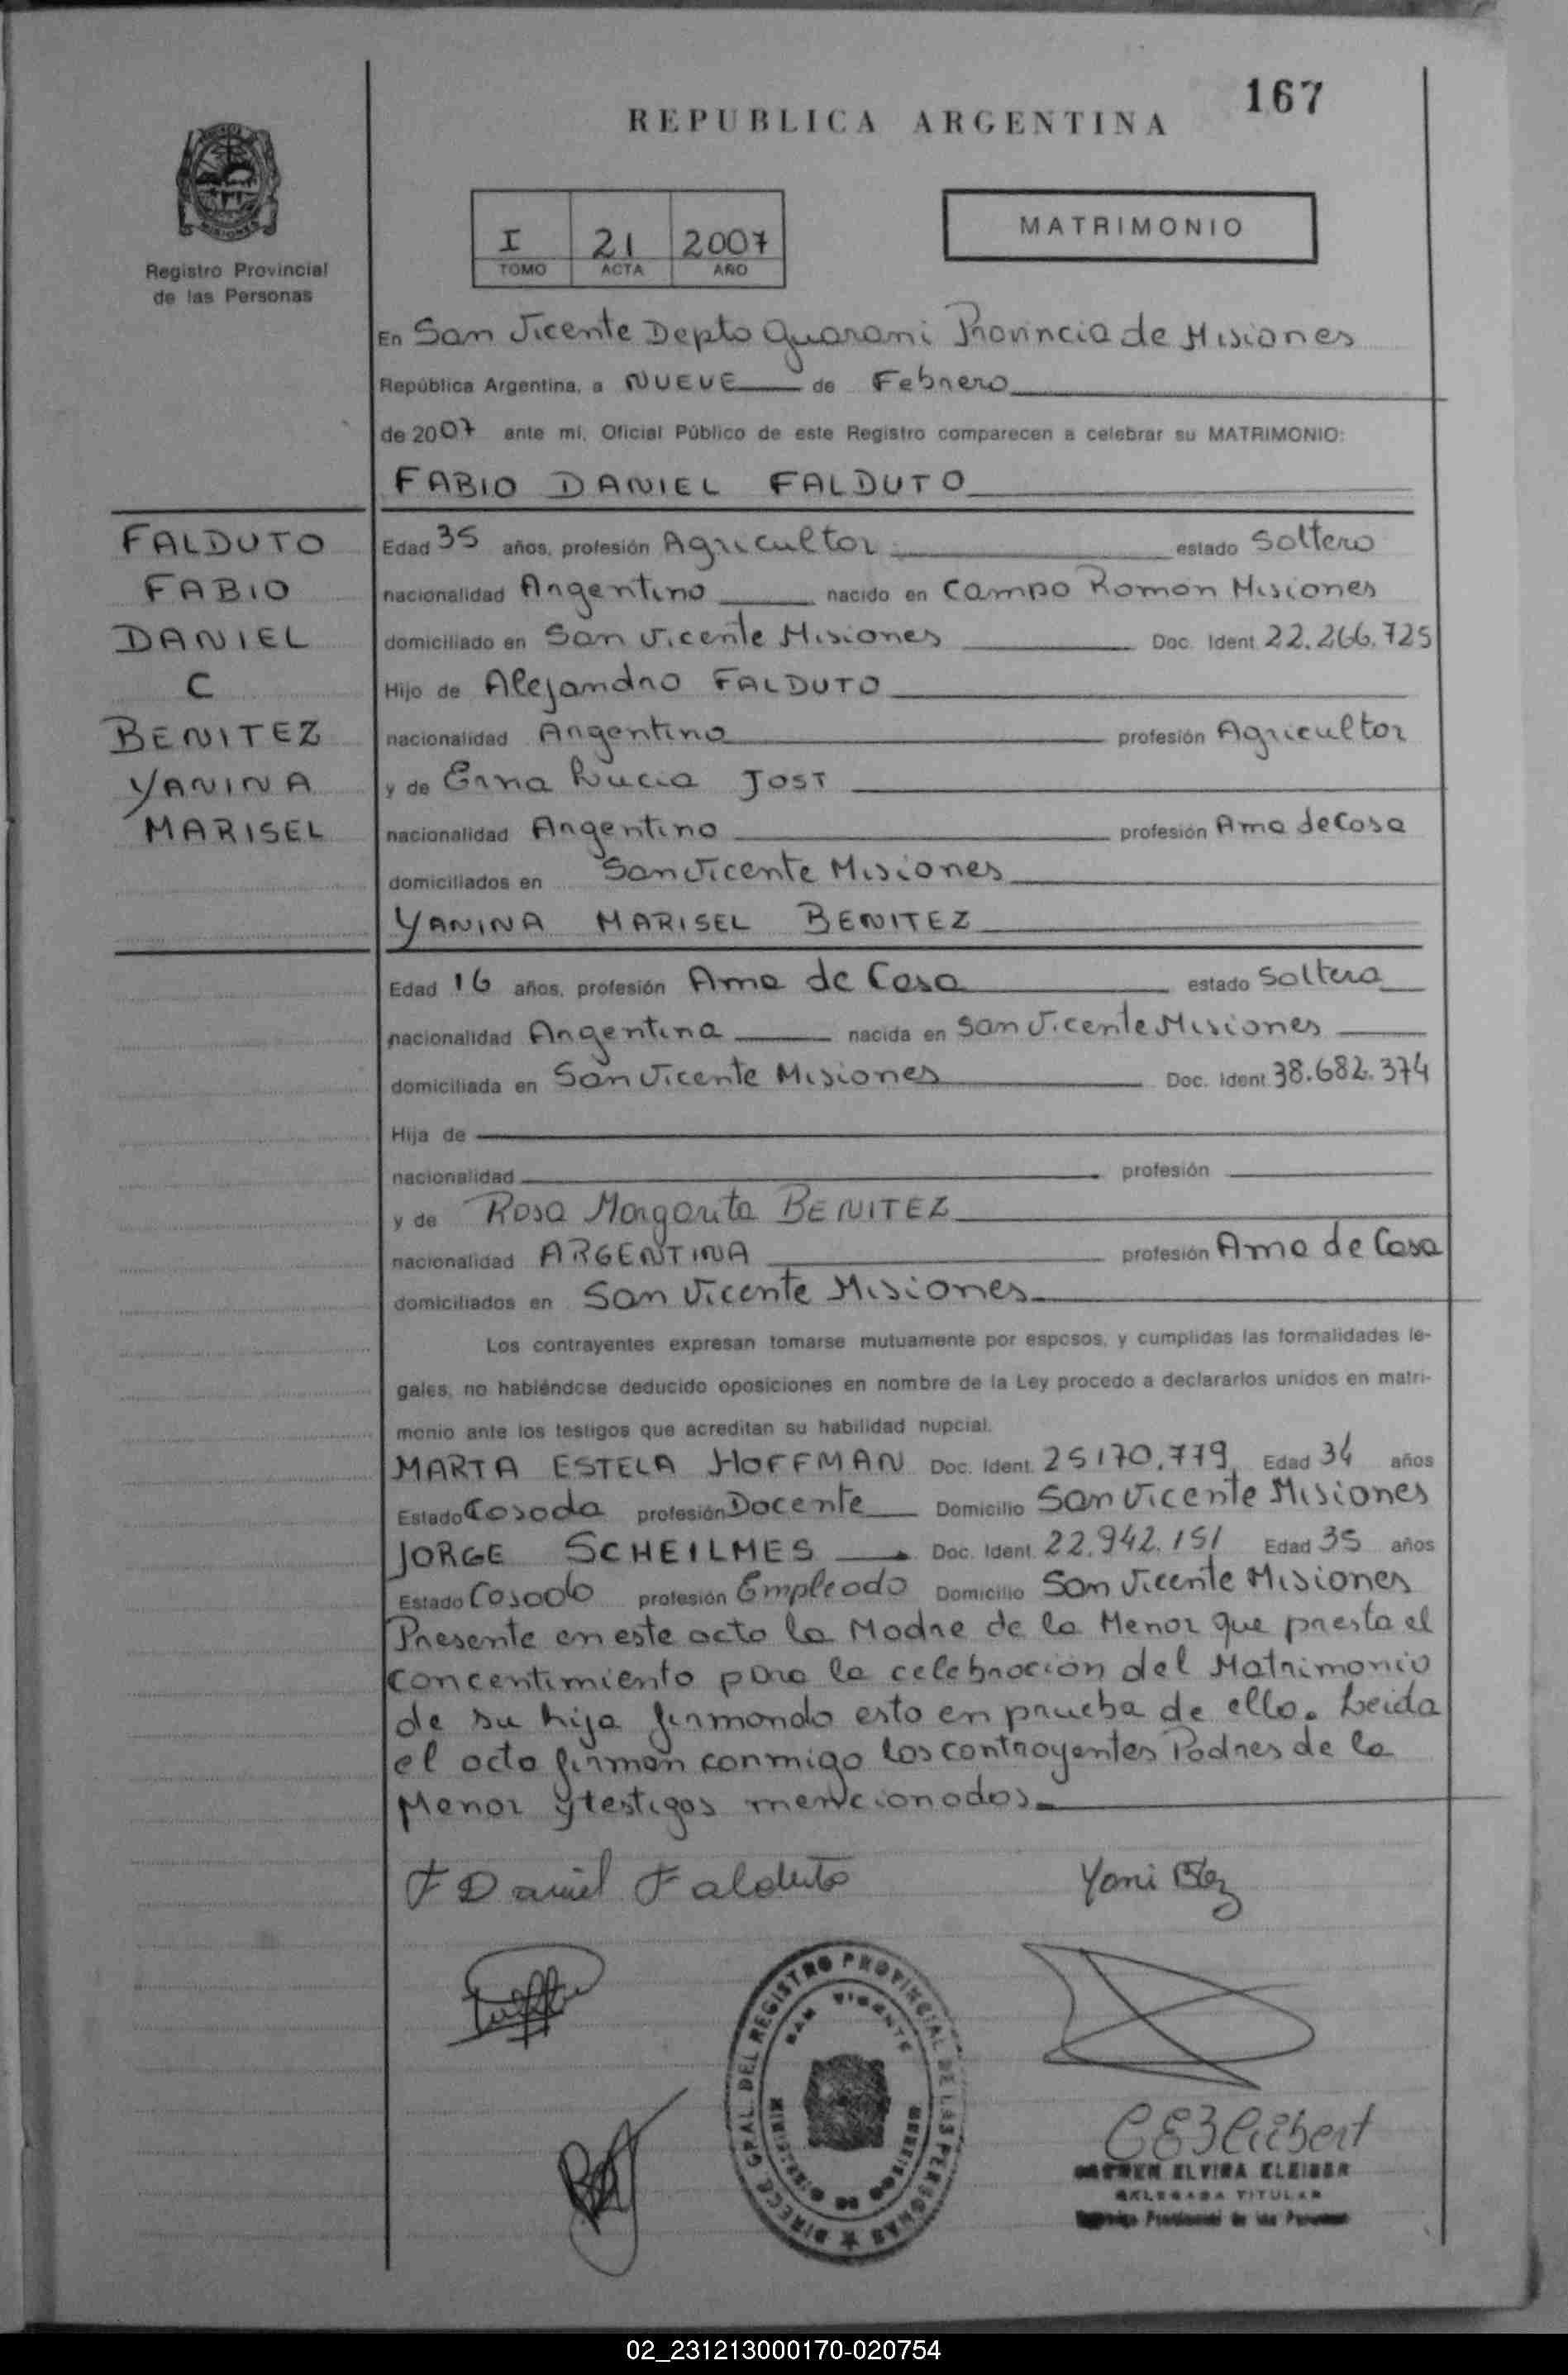 167
REPUBLICA ARGENTINA
MISIONES
Registro Provincial
de las Personas
I 21 2007
TOMO ACTA AÑO
MATRIMONIO
En San Vicente Depto Guarani Provincia de Misiones
República Argentina, a NUEVE de Febrero
de 2007 ante mí, Oficial Público de este Registro comparecen a celebrar su MATRIMONIO:
FABIO DANIEL FALDUTO
FALDUTO
FABIO
DANIEL
C
BENITEZ
YANINA
MARISEL
Edad 35 años, profesión Agricultor estado Soltero
nacionalidad Argentino nacido en Campo Ramon Misiones
domiciliado en San Vicente Misiones Doc. Ident 22.266.725
Hijo de Alejandro FALDUTO
nacionalidad Argentino profesión Agricultor
y de Erna Lucia JOST
nacionalidad Argentino profesión Ama de Casa
domiciliados en San Vicente Misiones
YANINA MARISEL BENITEZ
Edad 16 años, profesión Ama de Casa estado Soltera
nacionalidad Argentina nacida en San Vicente Misiones
domiciliada en San Vicente Misiones Doc. Ident 38.682.374
Hija de
nacionalidad profesión
y de Rosa Margarita BENITEZ
nacionalidad ARGENTINA profesión Ama de Casa
domiciliados en San Vicente Misiones
Los contrayentes expresan tomarse mutuamente por esposos, y cumplidas las formalidades le-
gales, no habiéndose deducido oposiciones en nombre de la Ley procedo a declararlos unidos en matri-
monio ante los testigos que acreditan su habilidad nupcial.
MARTA ESTELA HOFFMAN Doc. Ident. 25170.779 Edad 34 años
Estado Casada profesión Docente Domicilio San Vicente Misiones
JORGE SCHEILMES Doc. Ident. 22.942.151 Edad 35 años
Estado Casado profesión Empleado Domicilio San Vicente Misiones
Presente en este acto la Madre de la Menor que presta el
concentimiento para la celebracion del Matrimonio
de su hija firmando esto en prueba de ello. Leida
el acta firman conmigo los contrayentes Padres de la
Menor y testigos mencionados.
F Daniel Falduto
Yani
DIRECC. GRAL. DEL REGISTRO PROVINCIAL DE LAS PERSONAS
SAN VICENTE
MISIONES
ELVIRA
DELEGADA TITULAR
Provincial de las Personas
02_231213000170-020754